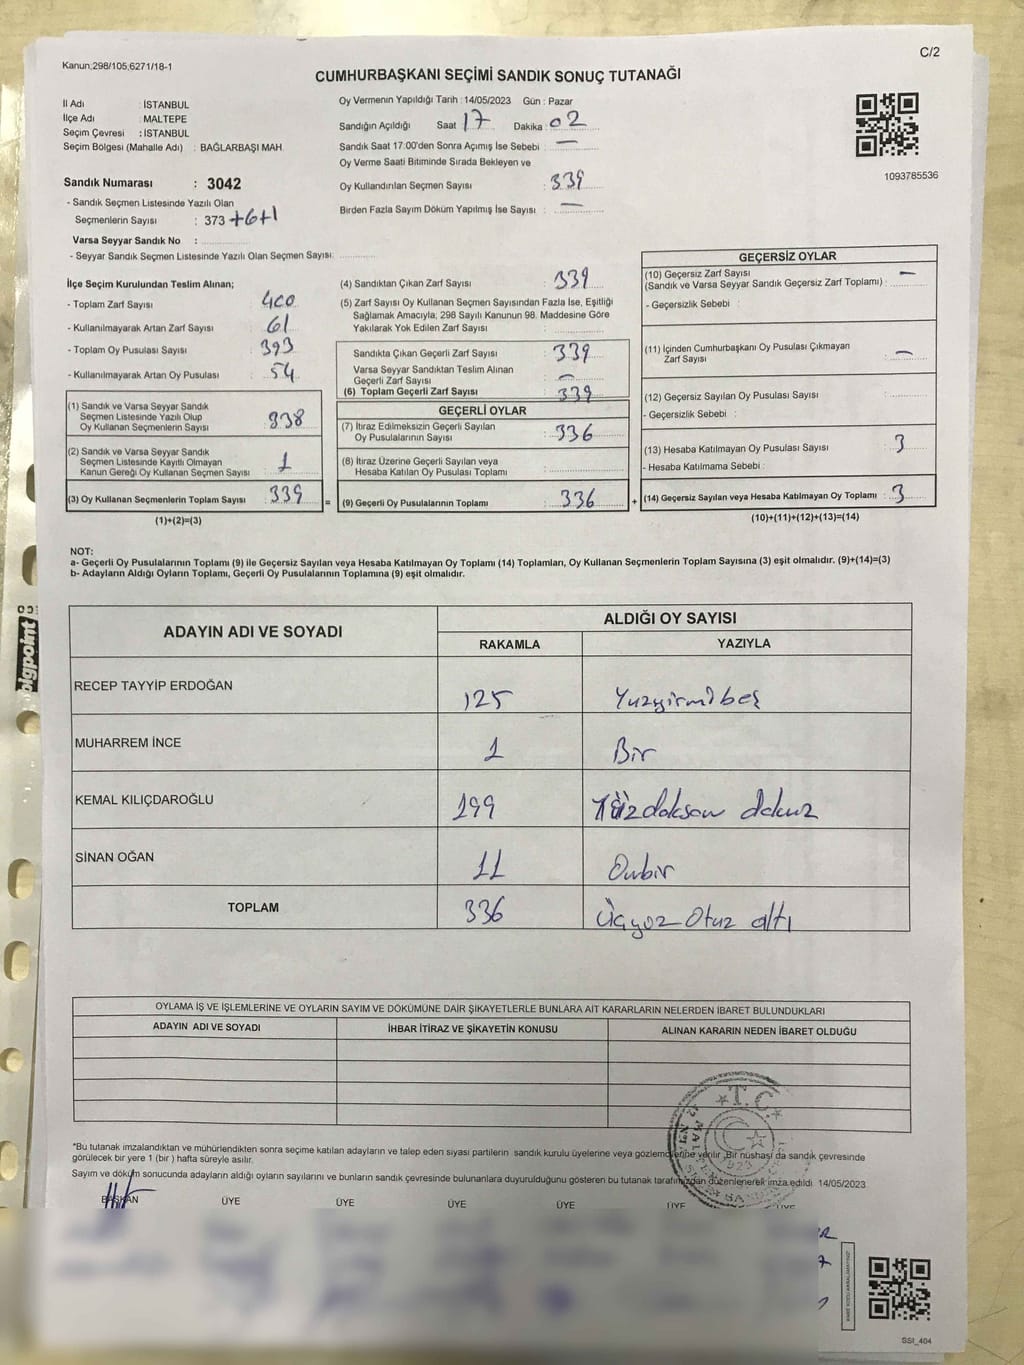 C/2
Kanun;298/105,6271/18-1
CUMHURBAŞKANI SEÇİMİ SANDIK SONUÇ TUTANAĞI
İl Adı : İSTANBUL
İlçe Adı : MALTEPE
Seçim Çevresi : İSTANBUL
Seçim Bölgesi (Mahalle Adı) : BAĞLARBAŞI MAH.
Sandık Numarası : 3042
- Sandık Seçmen Listesinde Yazılı Olan
Seçmenlerin Sayısı : 373 +6+1
Varsa Seyyar Sandık No :
- Seyyar Sandık Seçmen Listesinde Yazılı Olan Seçmen Sayısı:
Oy Vermenin Yapıldığı Tarih : 14/05/2023 Gün : Pazar
Sandığın Açıldığı Saat 17 Dakika : 02
Sandık Saat 17:00'den Sonra Açımış İse Sebebi : —
Oy Verme Saati Bitiminde Sırada Bekleyen ve
Oy Kullandırılan Seçmen Sayısı : 339
Birden Fazla Sayım Döküm Yapılmış İse Sayısı : —
1093785536
İlçe Seçim Kurulundan Teslim Alınan;
- Toplam Zarf Sayısı : 400
- Kullanılmayarak Artan Zarf Sayısı : 61
- Toplam Oy Pusulası Sayısı : 393
- Kullanılmayarak Artan Oy Pusulası : 54
(1) Sandık ve Varsa Seyyar Sandık
Seçmen Listesinde Yazılı Olup
Oy Kullanan Seçmenlerin Sayısı : 338
(2) Sandık ve Varsa Seyyar Sandık
Seçmen Listesinde Kayıtlı Olmayan
Kanun Gereği Oy Kullanan Seçmen Sayısı : 1
(3) Oy Kullanan Seçmenlerin Toplam Sayısı : 339 =
(1)+(2)=(3)
(4) Sandıktan Çıkan Zarf Sayısı : 339
(5) Zarf Sayısı Oy Kullanan Seçmen Sayısından Fazla İse, Eşitliği
Sağlamak Amacıyla; 298 Sayılı Kanunun 98. Maddesine Göre
Yakılarak Yok Edilen Zarf Sayısı :
Sandıkta Çıkan Geçerli Zarf Sayısı : 339
Varsa Seyyar Sandıktan Teslim Alınan
Geçerli Zarf Sayısı : —
(6) Toplam Geçerli Zarf Sayısı : 339
GEÇERLİ OYLAR
(7) İtiraz Edilmeksizin Geçerli Sayılan
Oy Pusulalarının Sayısı : 336
(8) İtiraz Üzerine Geçerli Sayılan veya
Hesaba Katılan Oy Pusulası Toplamı :
(9) Geçerli Oy Pusulalarının Toplamı : 336 +
GEÇERSİZ OYLAR
(10) Geçersiz Zarf Sayısı
(Sandık ve Varsa Seyyar Sandık Geçersiz Zarf Toplamı) : —
- Geçersizlik Sebebi :
(11) İçinden Cumhurbaşkanı Oy Pusulası Çıkmayan
Zarf Sayısı : —
(12) Geçersiz Sayılan Oy Pusulası Sayısı :
- Geçersizlik Sebebi :
(13) Hesaba Katılmayan Oy Pusulası Sayısı : 3
- Hesaba Katılmama Sebebi :
(14) Geçersiz Sayılan veya Hesaba Katılmayan Oy Toplamı : 3
(10)+(11)+(12)+(13)=(14)
NOT:
a- Geçerli Oy Pusulalarının Toplamı (9) ile Geçersiz Sayılan veya Hesaba Katılmayan Oy Toplamı (14) Toplamları, Oy Kullanan Seçmenlerin Toplam Sayısına (3) eşit olmalıdır. (9)+(14)=(3)
b- Adayların Aldığı Oyların Toplamı, Geçerli Oy Pusulalarının Toplamına (9) eşit olmalıdır.
ADAYIN ADI VE SOYADI ALDIĞI OY SAYISI
RAKAMLA YAZIYLA
RECEP TAYYİP ERDOĞAN 125 Yuzyirmibeş
MUHARREM İNCE 1 Bir
KEMAL KILIÇDAROĞLU 199 Yüzdoksan dokuz
SİNAN OĞAN 11 Onbir
TOPLAM 336 Üçyüz Otuz altı
OYLAMA İŞ VE İŞLEMLERİNE VE OYLARIN SAYIM VE DÖKÜMÜNE DAİR ŞİKAYETLERLE BUNLARA AİT KARARLARIN NELERDEN İBARET BULUNDUKLARI
ADAYIN ADI VE SOYADI İHBAR İTİRAZ VE ŞİKAYETİN KONUSU ALINAN KARARIN NEDEN İBARET OLDUĞU
*Bu tutanak imzalandıktan ve mühürlendikten sonra seçime katılan adayların ve talep eden siyasi partilerin sandık kurulu üyelerine veya gözlemcilerine verilir. Bir nüshası da sandık çevresinde
görülecek bir yere 1 (bir ) hafta süreyle asılır.
Sayım ve döküm sonucunda adayların aldığı oyların sayılarını ve bunların sandık çevresinde bulunanlara duyurulduğunu gösteren bu tutanak tarafımızdan düzenlenerek imza edildi. 14/05/2023
BAŞKAN ÜYE ÜYE ÜYE ÜYE ÜYE ÜYE
T.C.
SSI_404
bigpoint